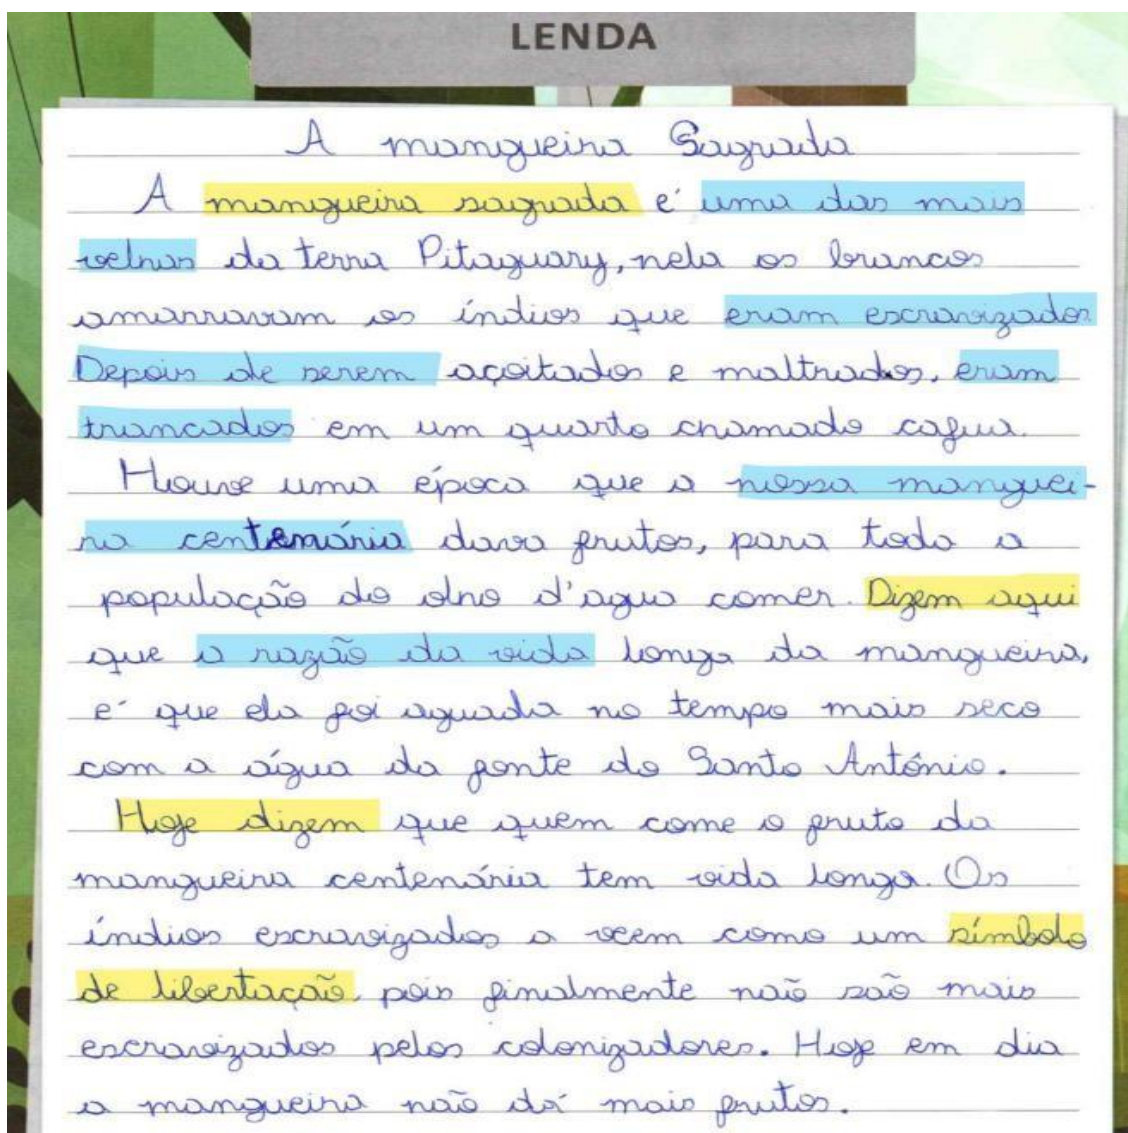 LENDA
A mangueira Sagrada
A mangueira sagrada é uma das mais
velhas da terra Pitaguary, nela os brancos
amarravam os índios que eram escravizados
Depois de serem açoitados e maltrados, eram
trancados em um quarto chamado cafua.
Houve uma época que a nossa manguei-
ra centenária dava frutos, para toda a
população do olho d'agua comer. Dizem aqui
que a razão da vida longa da mangueira,
é que ela foi aguada no tempo mais seco
com a água da fonte do Santo Antônio.
Hoje dizem que quem come o fruto da
mangueira centenária tem vida longa. Os
índios escravizados a veem como um símbolo
de libertação, pois finalmente não são mais
escravizados pelos colonizadores. Hoje em dia
a mangueira não dá mais frutos.